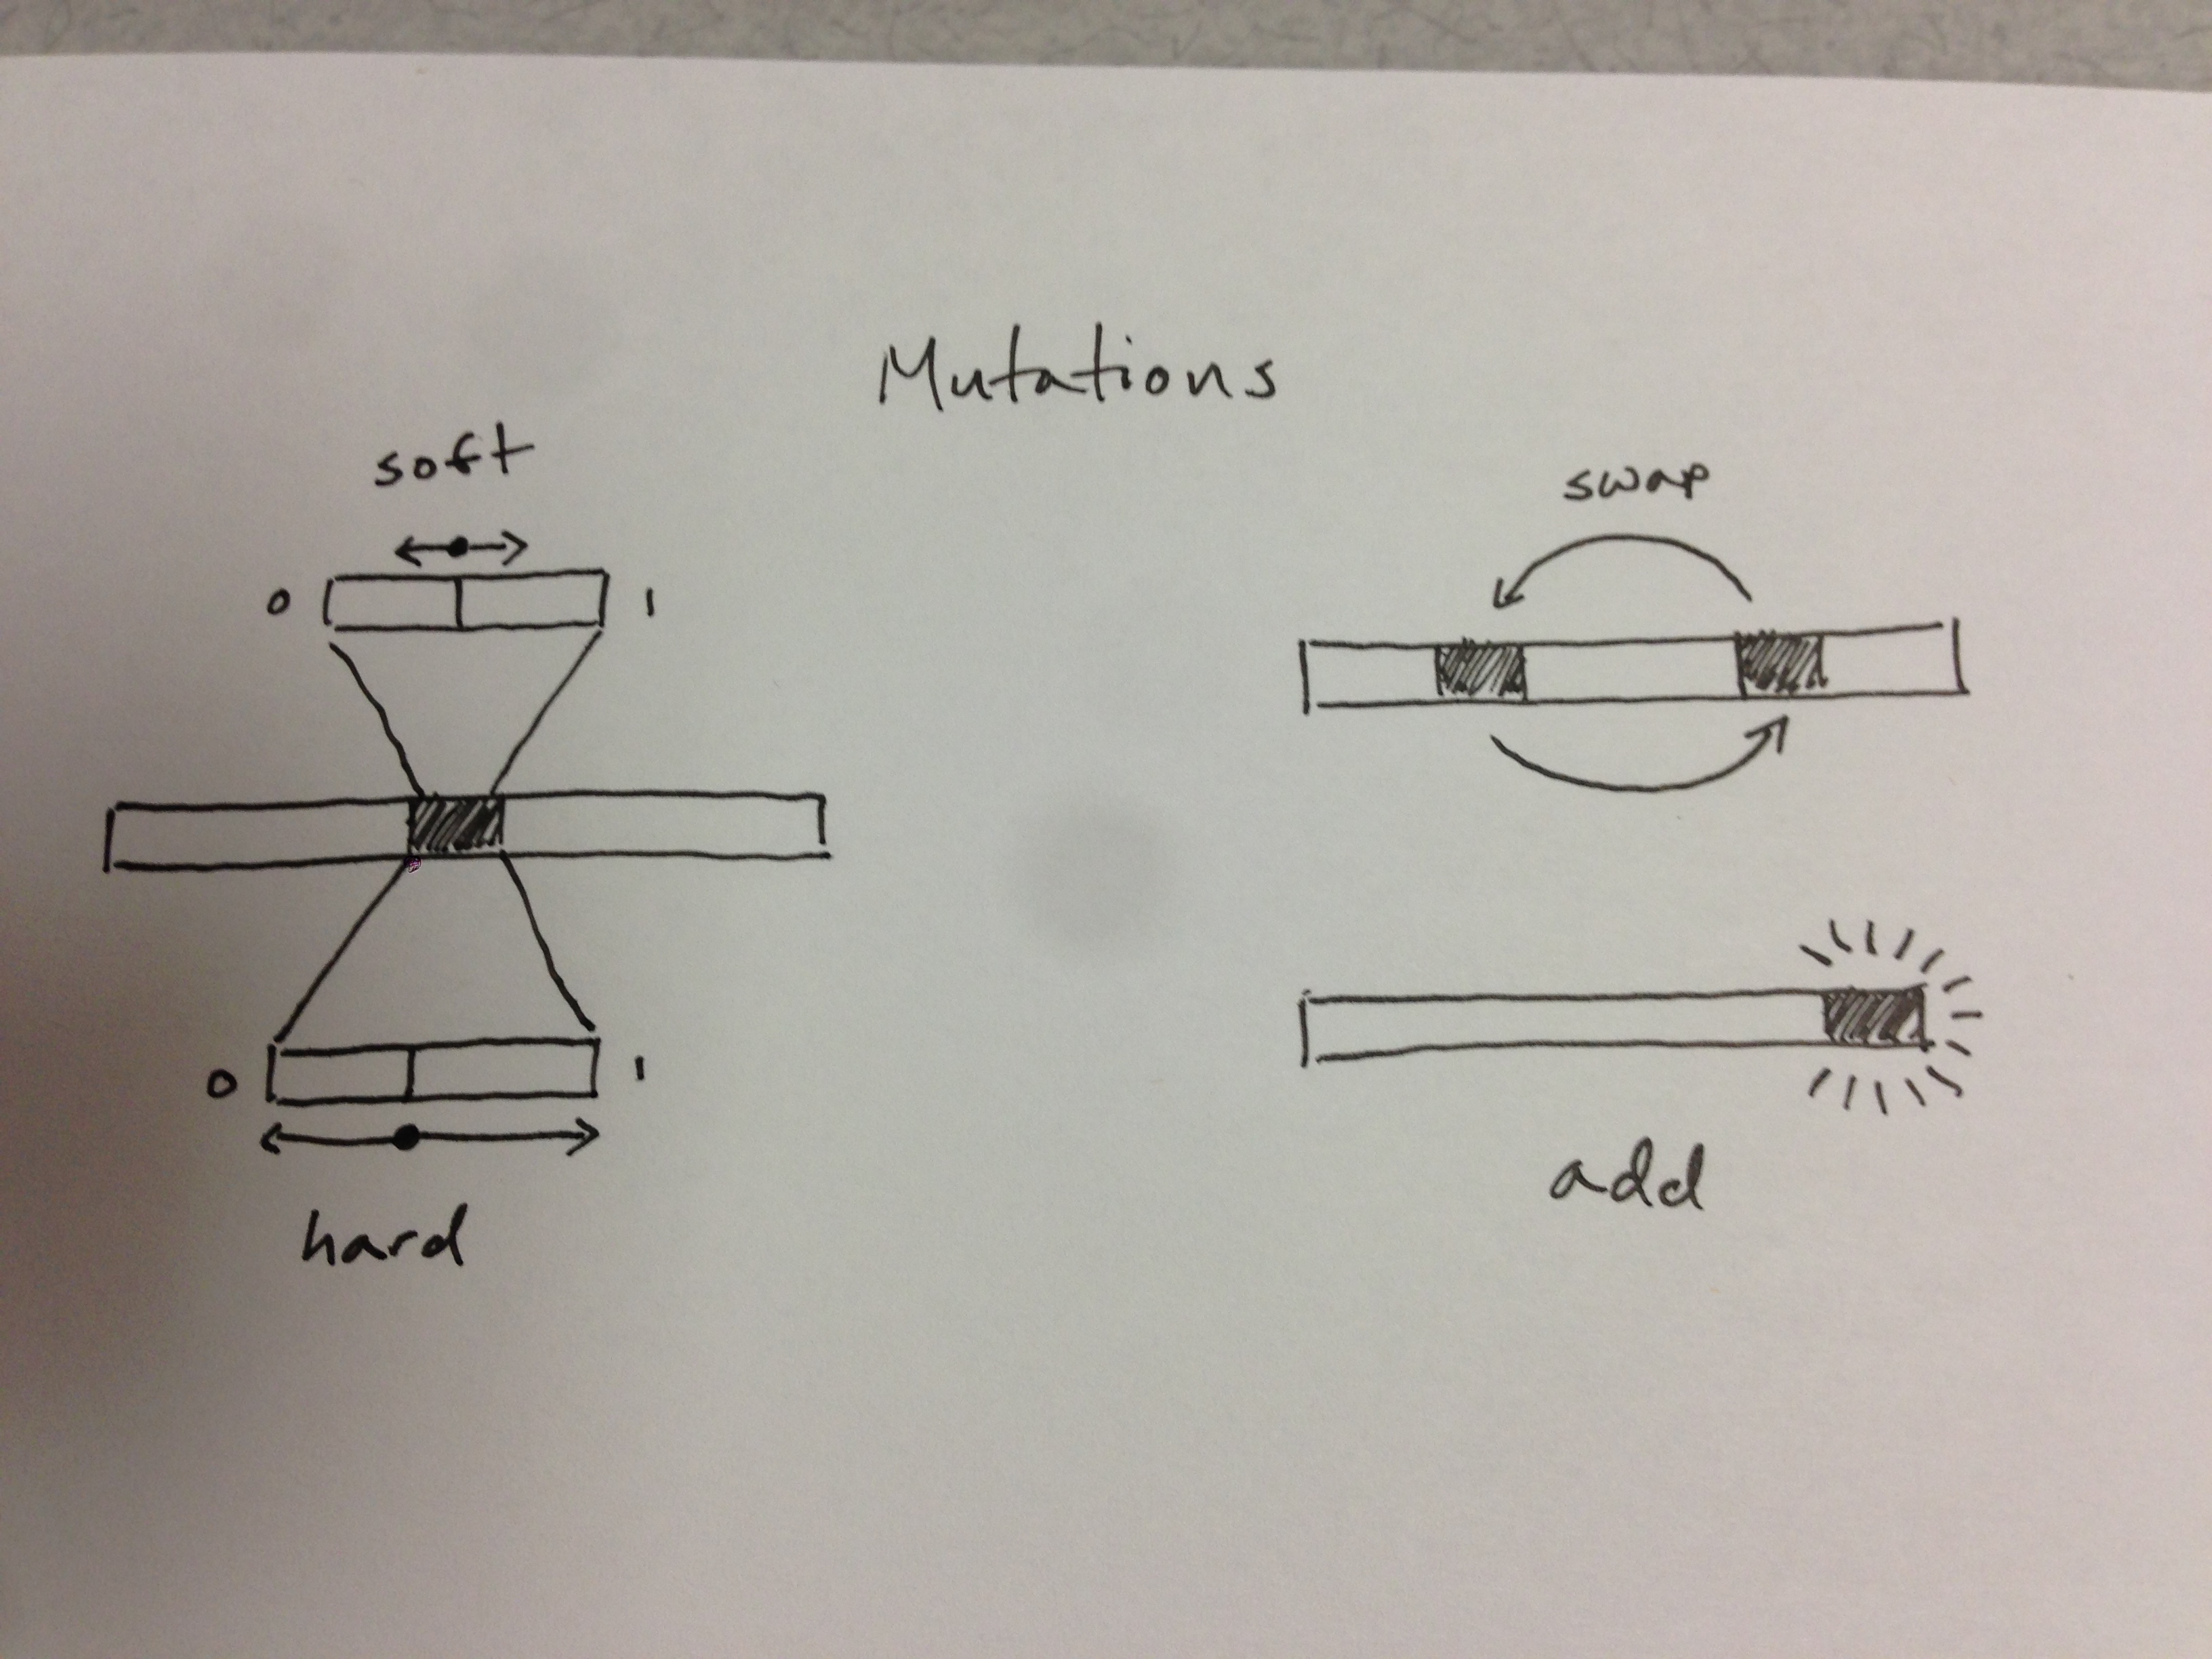 Mutations
soft
0 1
0 1
hard
swap
add